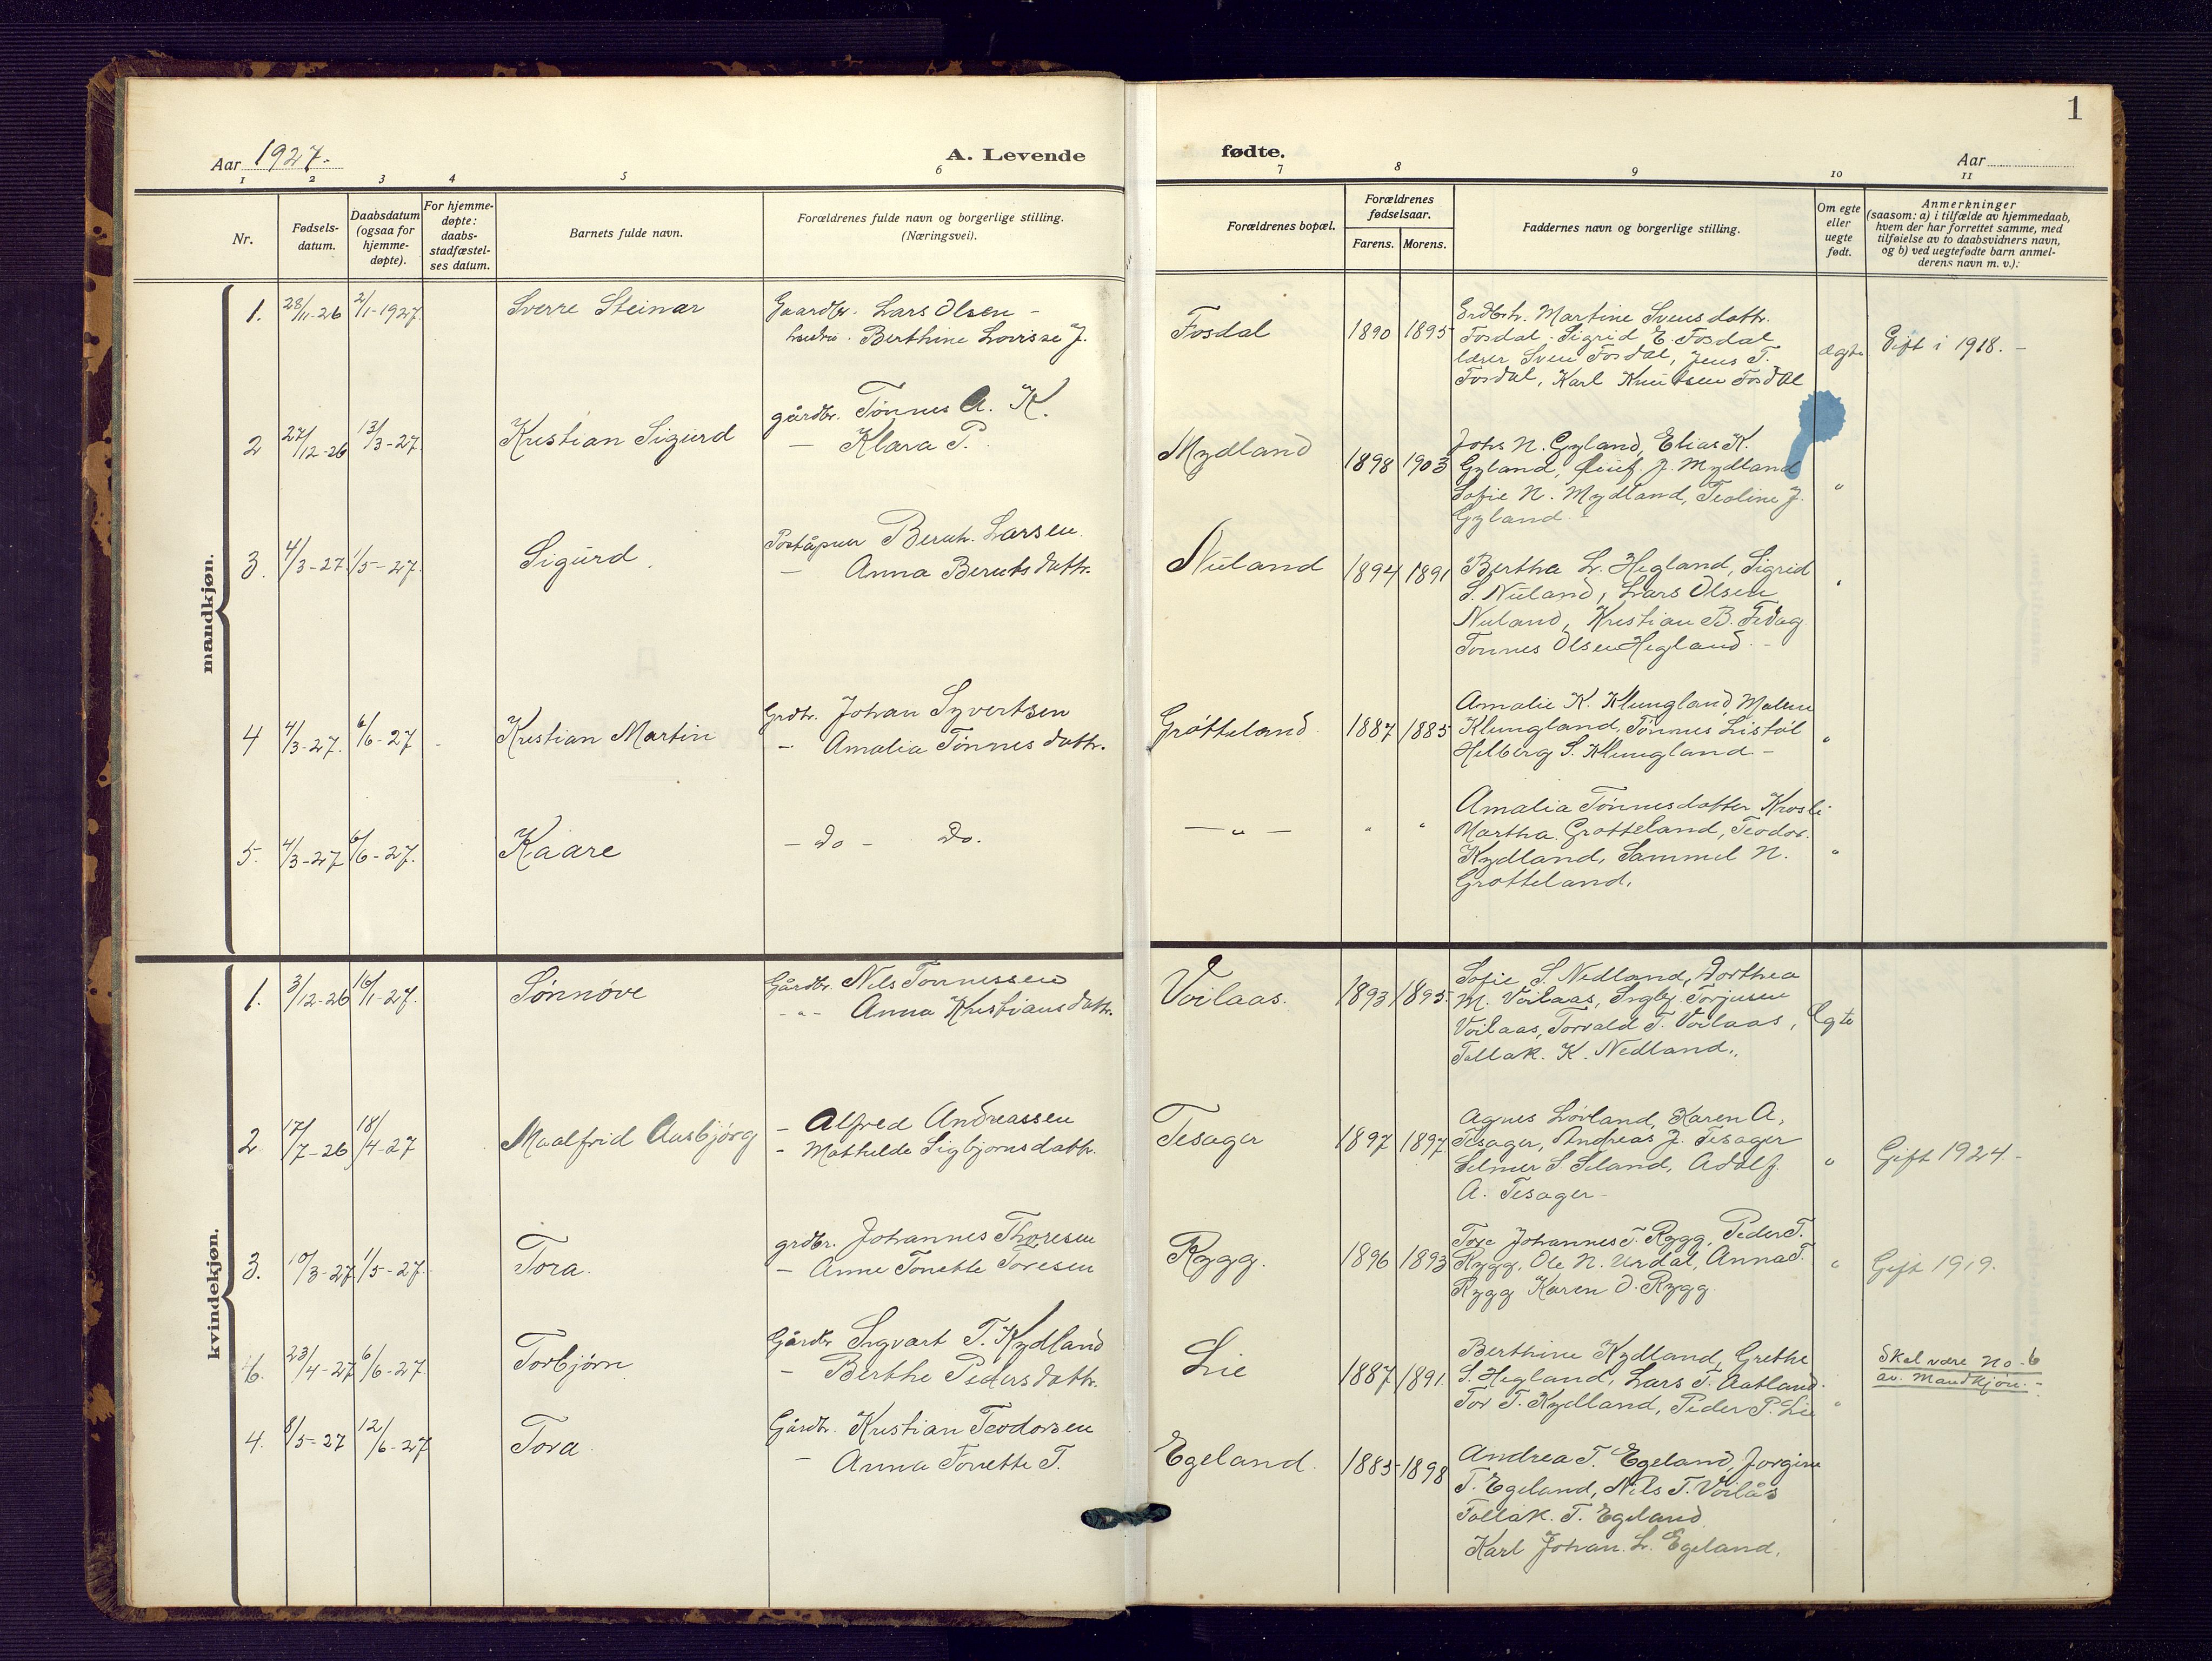 1
Aar 1927.
A. Levende
fødte.
Aar
1 2 3 4 5 6 7 8 9 10 11
Nr.
Fødsels-
datum.
Daabsdatum
(ogsaa for
hjemme-
døpte).
For hjemme-
døpte:
daabs-
stadfæstel-
ses datum.
Barnets fulde navn.
Forældrenes fulde navn og borgerlige stilling.
(Næringsvei).
Forældrenes bopæl.
Forældrenes
fødselsaar.
Farens. Morens.
Faddernes navn og borgerlige stilling.
Om egte
eller
uegte
født.
Anmerkninger
(saasom: a) i tilfælde av hjemmedaab,
hvem der har forrettet samme, med
tilføielse av to daabsvidners navn,
og b) ved uegtefødte barn anmel-
derens navn m. v.):
mandkjøn.
1. 28/11-26 2/1-1927. Sverre Steinar
Gaardbr. Lars Olsen -
hustru. Berthine Lovisse J.
Fosdal 1890 1895
Grdbr. Martine Svensdattr.
Fosdal. Sigrid E. Fosdal
lærer Sven Fosdal, Jens T.
Fosdal, Karl Knutsen Fosdal
ægte Gift i 1918. -
2 27/12-26 13/3-27 Kristian Sigurd
gårdbr. Tønnes A. K.
- Klara P.
Mydland 1898 1903
Johs N. Gyland, Elias K.
Gyland, J. Mydland
Sofie N. Mydland, Teoline J.
Gyland -
"
3. 4/3-27 1/5-27. Sigurd.
Poståpner Bernh. Larsen.
- Anna Berntsdattr.
Nuland 1894 1891
Bertha L. Hegland, Sigrid
S. Nuland, Lars Olsen
Nuland, Kristian B. Fedog
Tønnes Olsen Hegland. -
"
4 4/3-27. 6/6-27 - Kristian Martin
Grdbr. Johan Syvertsen
- Amalia Tønnesdattr.
Grøtteland. 1887 1885
Amalie K. Klungland, Malene
Klungland, Tønnes Listøl
Helberg S. Klungland -
"
5. 4/3-27 6/6-27. Kaare
- do - do.
- " - " "
Amalia Tønnesdatter Krosli
Martha Grøtteland, Teodor.
Kydland, Sammel N.
Grøtteland.
"
kvindekjøn.
1. 3/12-26 16/1-27. Sønnøve
Gårdbr. Nils Tønnessen
- " - Anna Kristiansdattr.
Voilaas. 1893 1895.
Sofie S. Nedland, Dorthea
M. Voilaas, Ingbj. Torjusen
Voilaas, Torvald T. Voilaas,
Tallak. K. Nedland.
Egte
2 17/7-26 18/4-27 Maalfrid Aasbjørg
- Alfred Andreassen
- Mathilde Sigbjørnsdattr.
Tesager 1897 1897.
Agnes Lovland, Karen A.
Tesager, Andreas J. Tesager
Selmer S Seland, Adolf
A. Tesager -
" Gift 1924 -
3. 10/3-27 1/5-27. Tora.
grdbr. Johannes Thoresen
- Anne Tonette Toresen
Rygg. 1896 1893
Tore Johannes T. Rygg, Peder T.
Rygg, Ole N. Urdal, Anna T.
Rygg Karen O. Rygg.
" Gift 1919.
6. 23/4-27 6/6-27. Torbjørn
Gårdbr Sigvart T. Kydland
- Berthe Pedersdattr.
Lie 1887 1891.
Berthine Kydland, Grethe
S. Hegland, Lars T. Aatland.
Tor T. Kydland, Peder P. Lie
"
Skal være No. 6
av Mandkjøn. -
4. 8/5-27 12/6-27 Tora.
Gårdbr. Kristian Teodorsen
- Anna Tonette T.
Egeland. 1885 1898
Andrea T. Egeland, Jorgine
T. Egeland, Nils T. Voilås
Tallak. T. Egeland
Karl Johan L. Egeland.